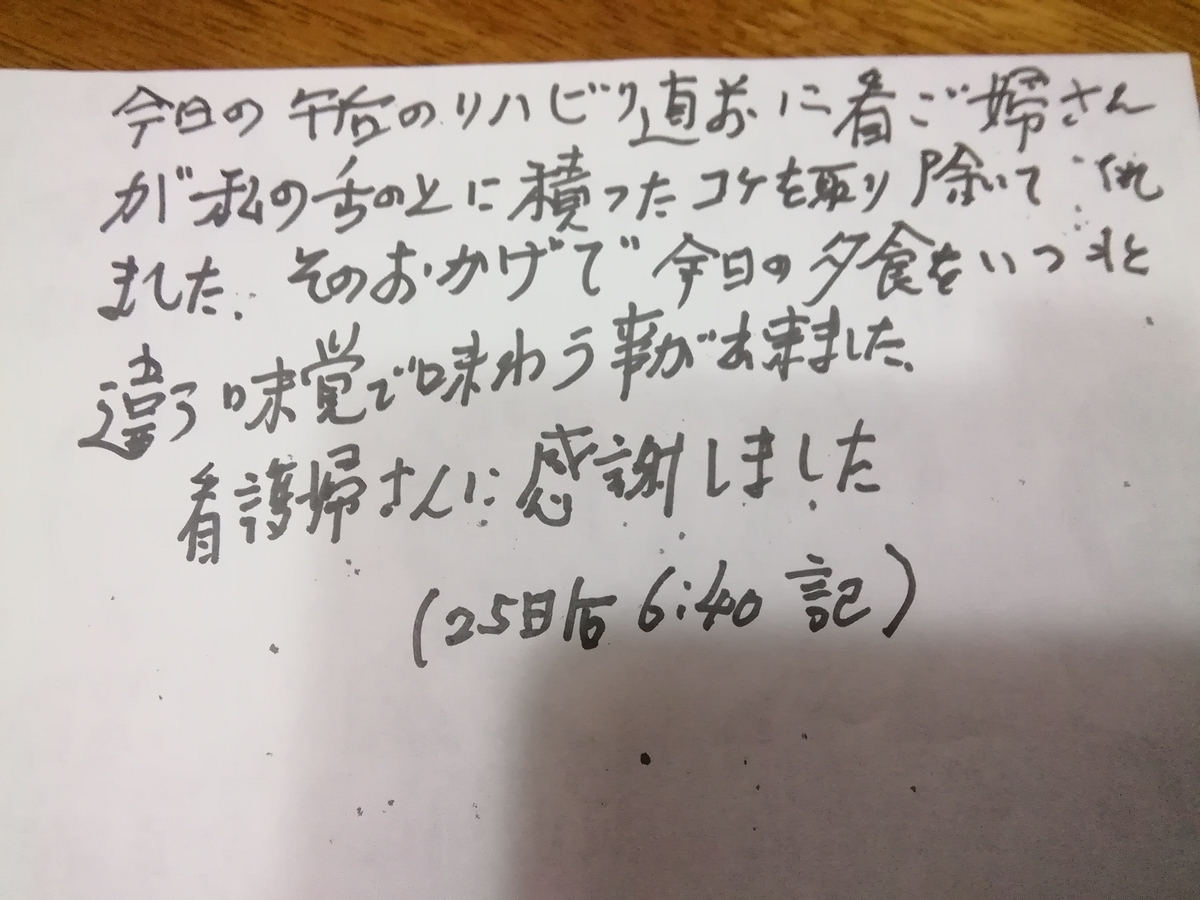 今日の午后のリハビリ直前に看ご婦さん
が私の舌の上に積ったコケを取り除いて呉れ
ました。そのおかげで今日の夕食をいつもと
違う味覚で味わう事が出来ました。
看護婦さんに感謝しました
(25日后6:40 記)